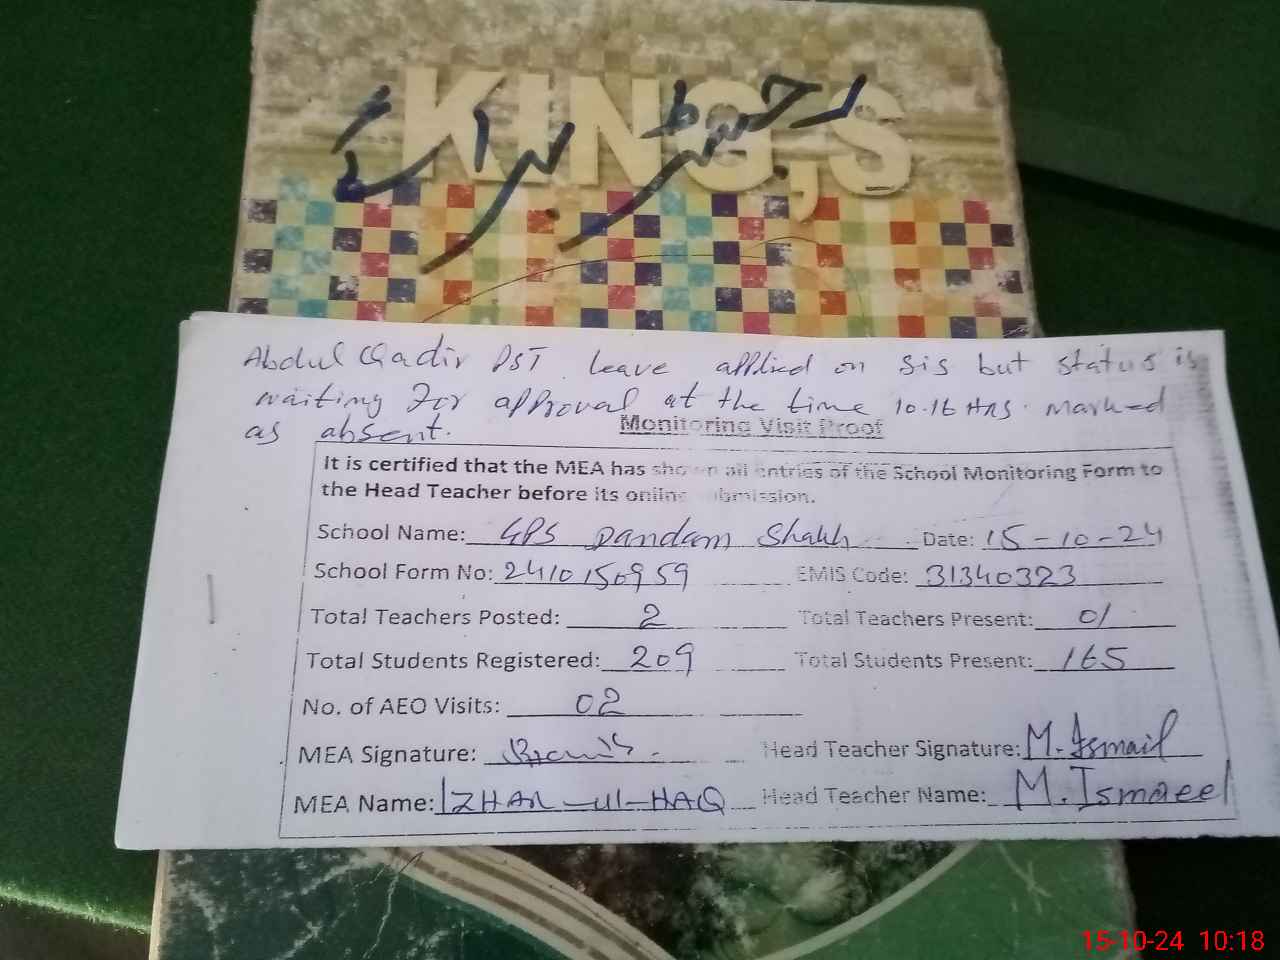 KING,S
رجسٹر برائے
Abdul Qadir PST. leave applied on sis but status is
waiting For approval at the time 10.16 Hrs. marked
as absent.
Monitoring Visit Proof
It is certified that the MEA has shown all entries of the School Monitoring Form to
the Head Teacher before its online submission.
School Name: GPS Dandam Shakh Date: 15-10-24
School Form No: 2410150959 EMIS Code: 31340323
Total Teachers Posted: 2 Total Teachers Present: 01
Total Students Registered: 209 Total Students Present: 165
No. of AEO Visits: 02
MEA Signature: Head Teacher Signature: M. Ismail
MEA Name: IZHAR-ul-HAQ Head Teacher Name: M. Ismaeel
15-10-24 10:18